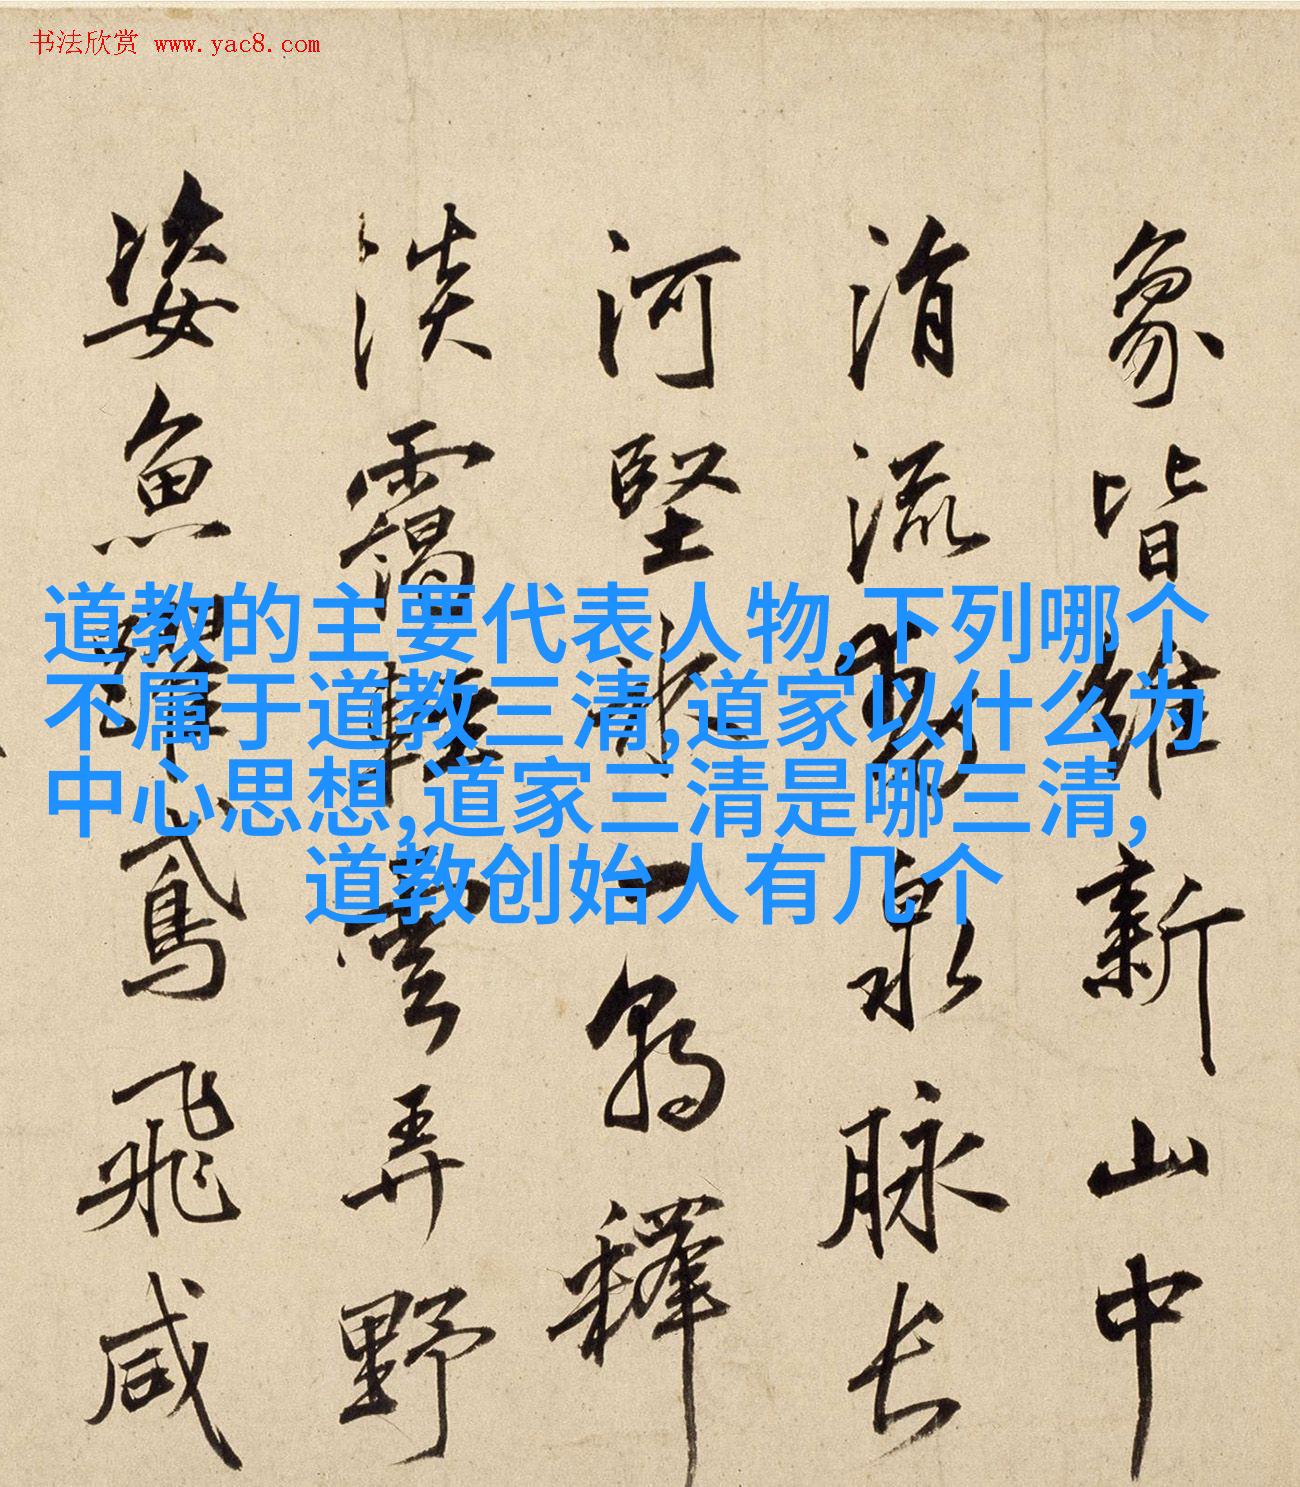 书法欣赏 www.yac8.com
象皆雖新山中
消流動泉脉长
河堅冰一朝釋
淡靄輕雲弄野
姿魚躍鳶飛咸
道教的主要代表人物,下列哪个
不属于道教三清,道家以什么为
中心思想,道家三清是哪三清,
道教创始人有几个